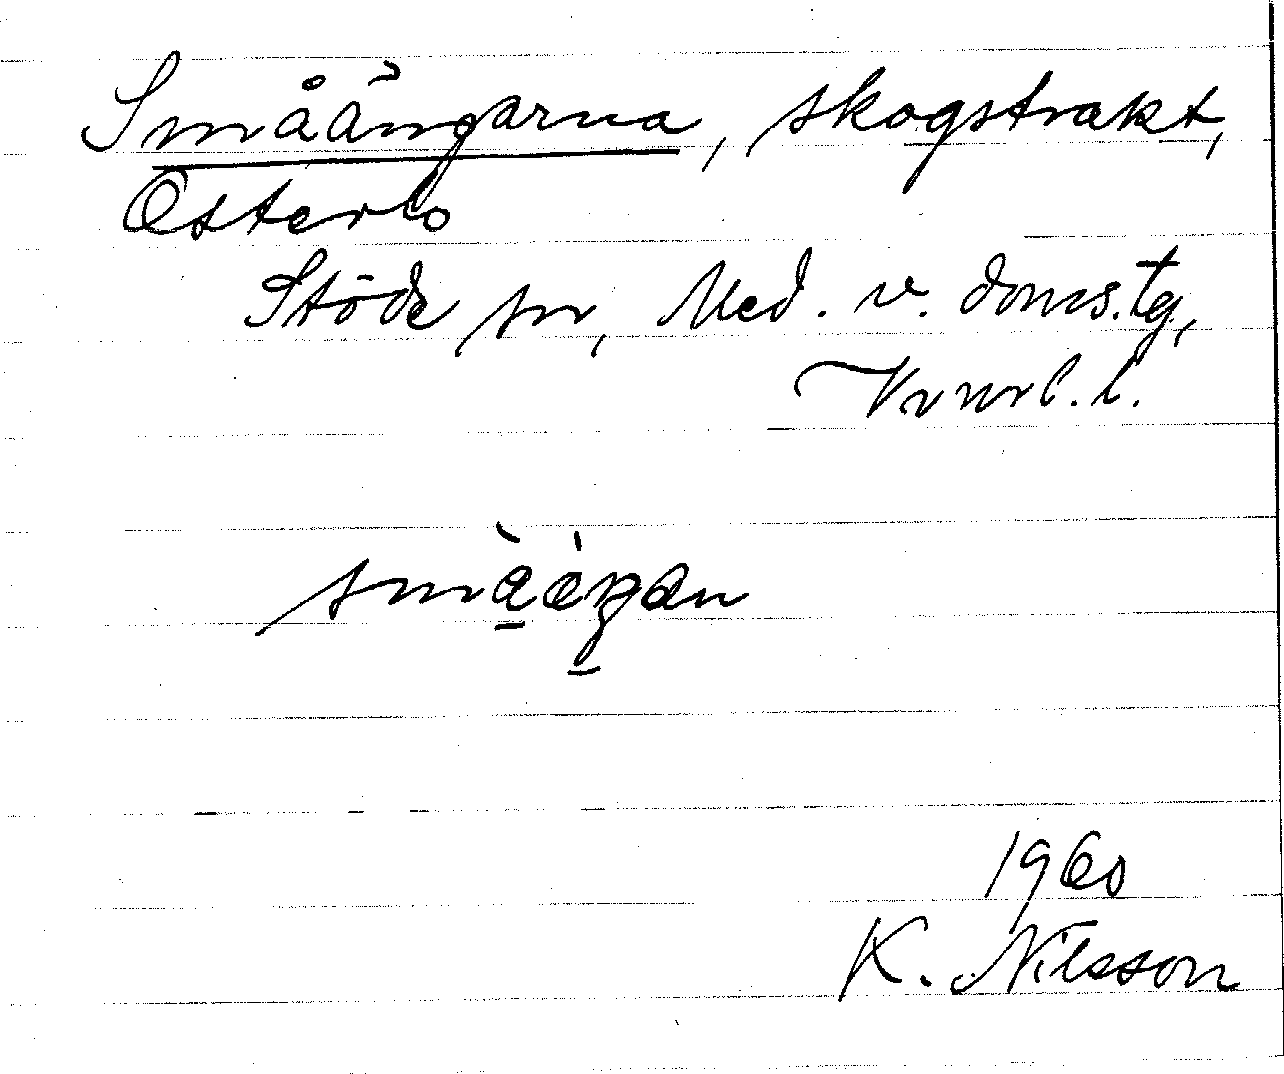 Småängarna, skogstrakt,
Österlo
Stöde sn, Med. v. doms.tg,
Vrnrl. l.
småäŋan
1960
K. Nilsson